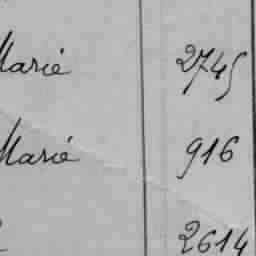 Marié 2745
Marié 916
2614